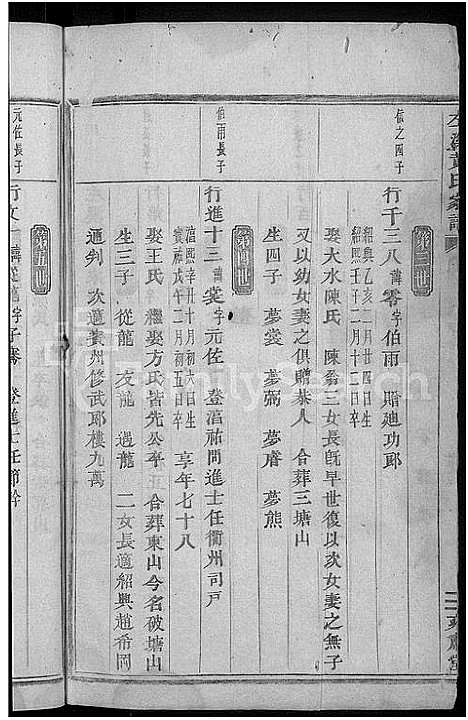 黃氏家譜
第三世
伯之四子
行千三八 諱零字伯雨 贈廸功郎
紹興乙亥二月廿四日生
紹熙壬子二月十三日卒
娶大水陳氏 陳翁三女長旣早世復以次女妻之無子
又以幼女妻之俱贈恭人 合葬三塘山
生四子 夢裳 夢弼 夢膺 夢熊
第四世
伯雨長子
行進十三 諱裳字元佐 登淳祐間進士任衢州司戶
淳熙辛丑十月初六日生
寶祐戊午二月初五日卒 享年七十八
娶王氏 繼娶方氏皆先公卒 合葬東山今名破塘山
生三子 從龍 友龍 遇龍 二女長適紹興趙希岡
通判 次適婺州修武郎樓九萬
第五世
元佐長子
行文 諱從龍字子 登進士任節幹